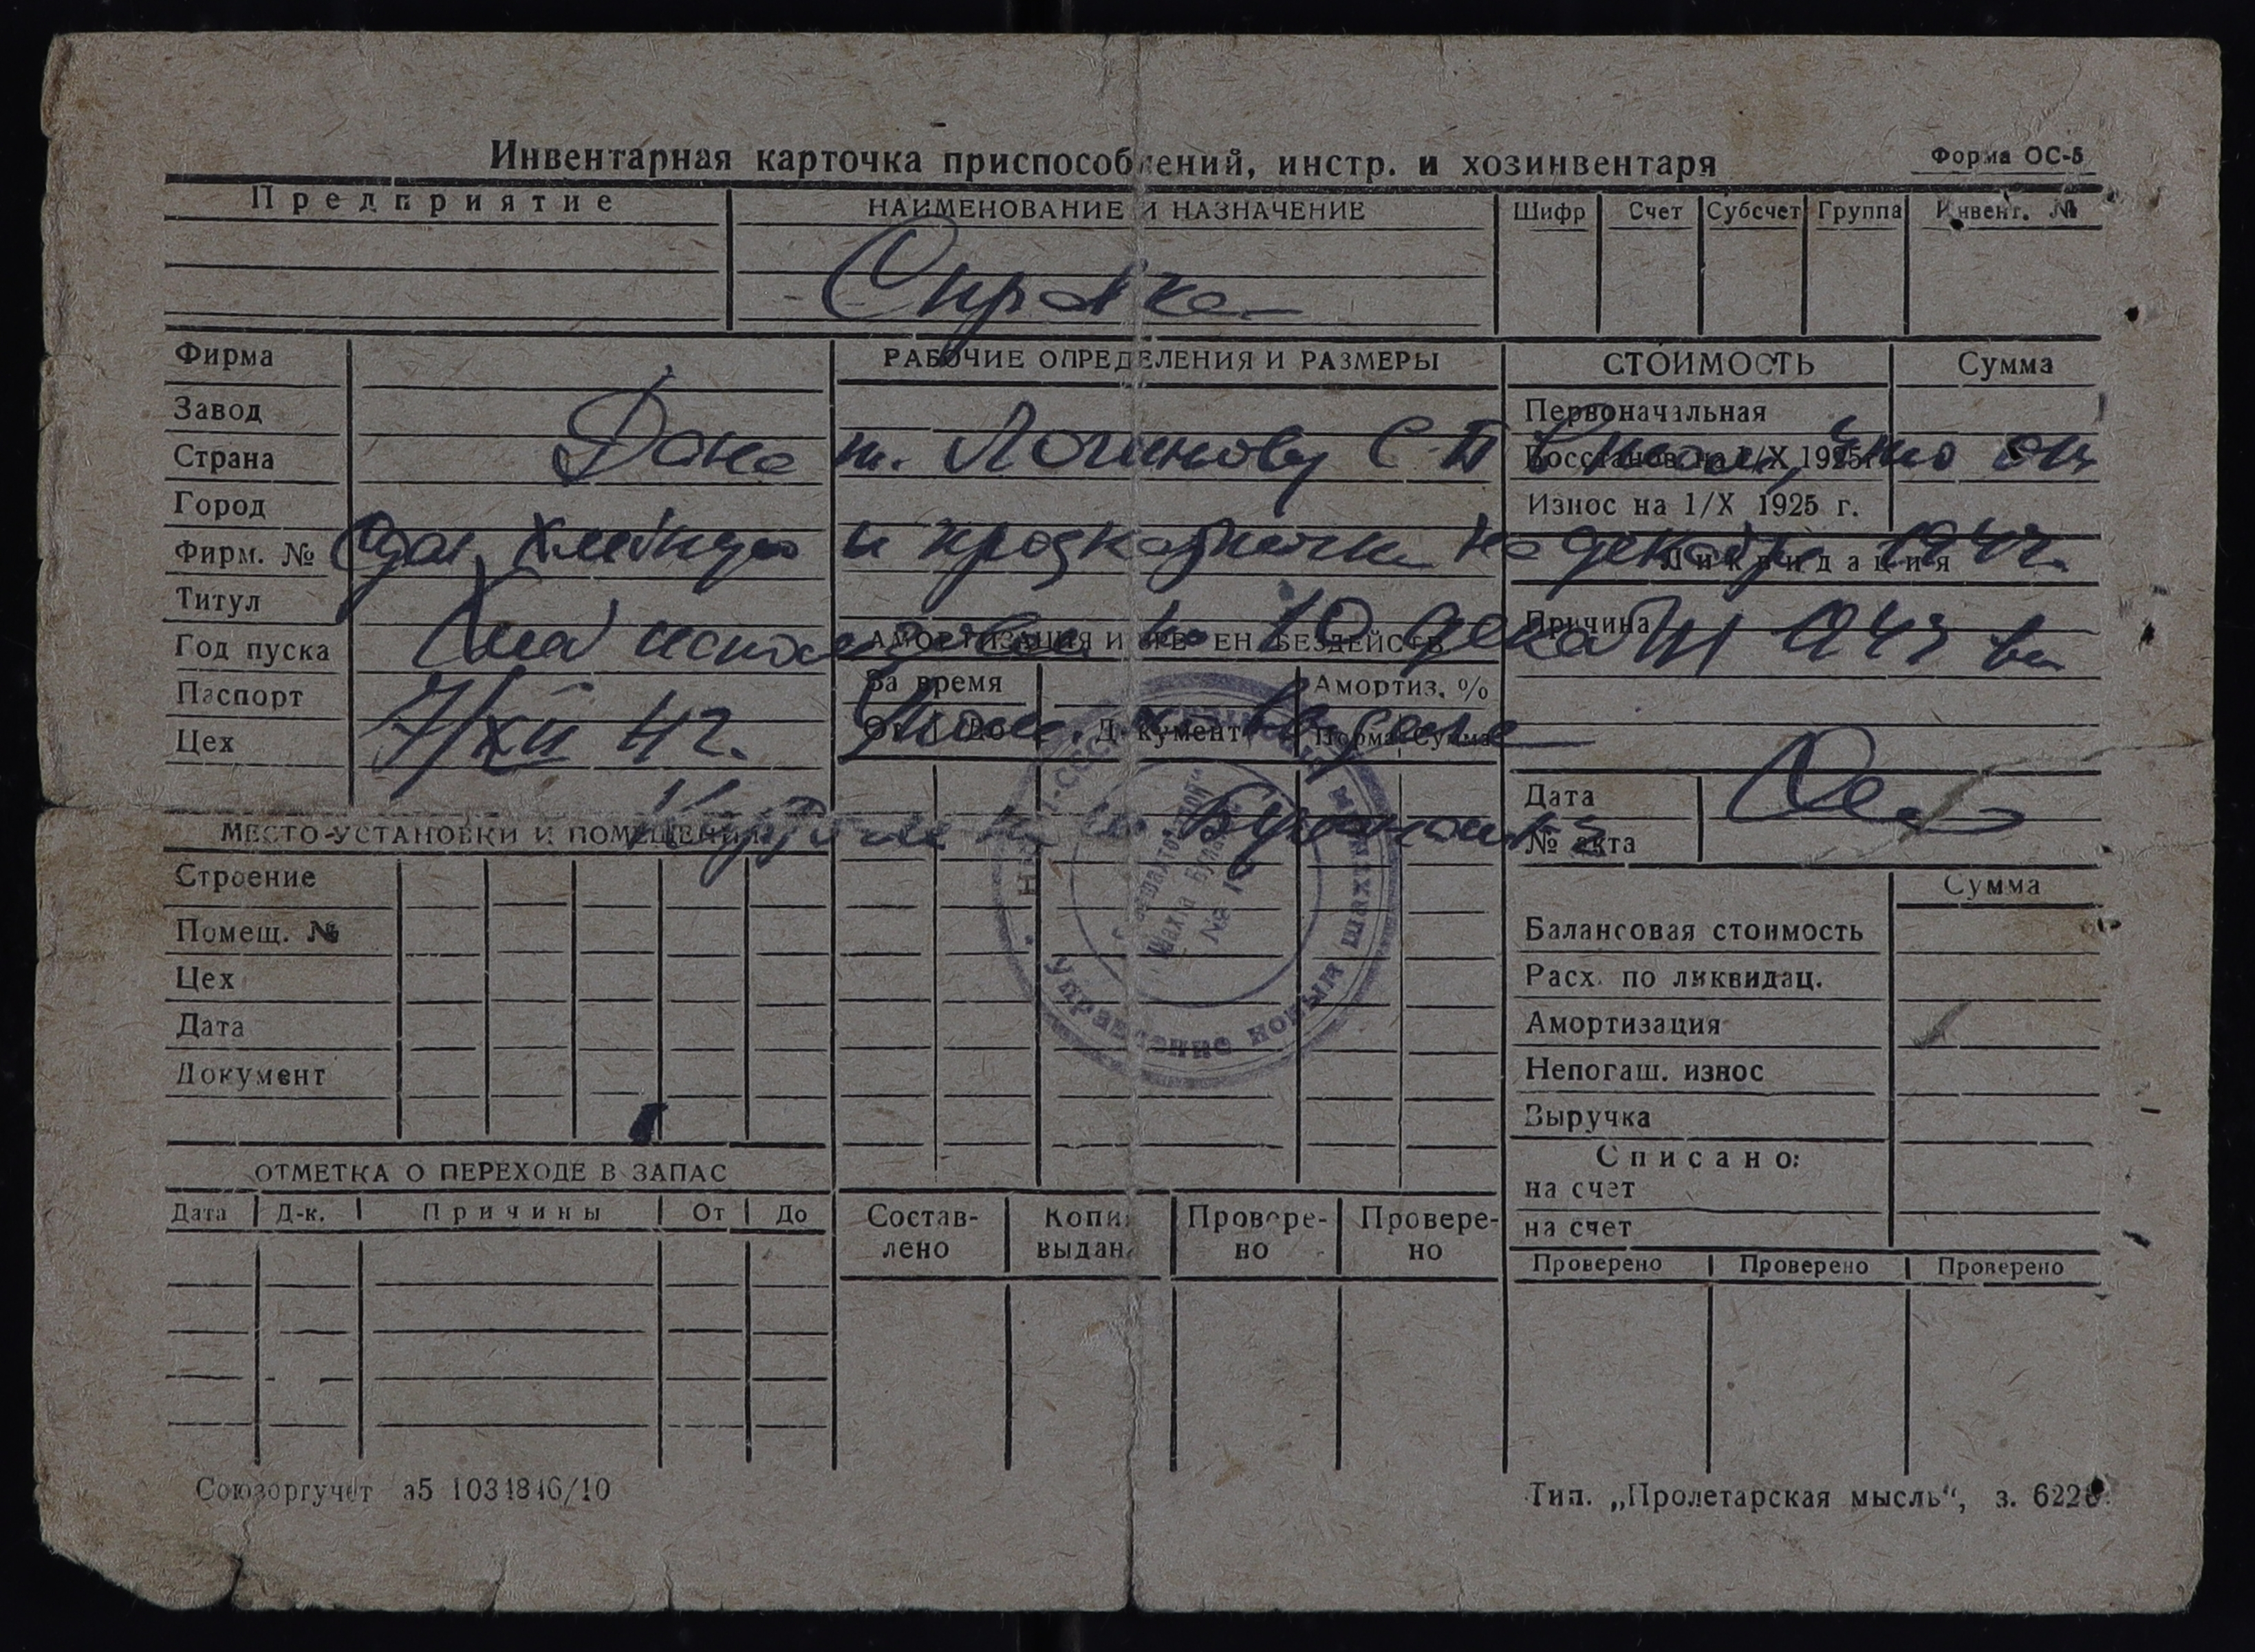 Инвентарная карточка приспособлений, инстр. и хозинвентаря
Форма ОС-5
Предприятие
НАИМЕНОВАНИЕ И НАЗНАЧЕНИЕ
Шифр Счет Субсчет Группа Инвент. №
Справка
Фирма
РАБОЧИЕ ОПРЕДЕЛЕНИЯ И РАЗМЕРЫ
СТОИМОСТЬ Сумма
Завод
Первоначальная
Дана т. Логинову С. П в том, что он
Страна
Восстанов. на 1/X 1925г.
Город
Износ на 1/X 1925 г.
сдал хлебную и продкарточки на декабрь 1942г.
Фирм. №
Ликвидация
Титул
Причина
Хлеб использован по 10 декабря 1942 вкл
Год пуска
АМОРТИЗАЦИЯ И ВРЕМЕН. БЕЗДЕЙСТВ.
Паспорт
За время
Амортиз. %
7/XII 42.
Цех
От До Документ Норма Сумма
Дата
№ акта
МЕСТО УСТАНОВКИ И ПОМЕЩЕНИЯ
Строение
Помещ. №
Цех
Дата
Документ
Управление новыми шахтами
Шахта
№
Сумма
Балансовая стоимость
Расх. по ликвидац.
Амортизация
Непогаш. износ
Выручка
Списано:
на счет
на счет
ОТМЕТКА О ПЕРЕХОДЕ В ЗАПАС
Дата Д-к. Причины От До
Состав-
лено
Копия
выдана
Провере-
но
Провере-
но
Проверено Проверено Проверено
Союзоргучет з5 1031846/10
Тип. „Пролетарская мысль“, з. 6226